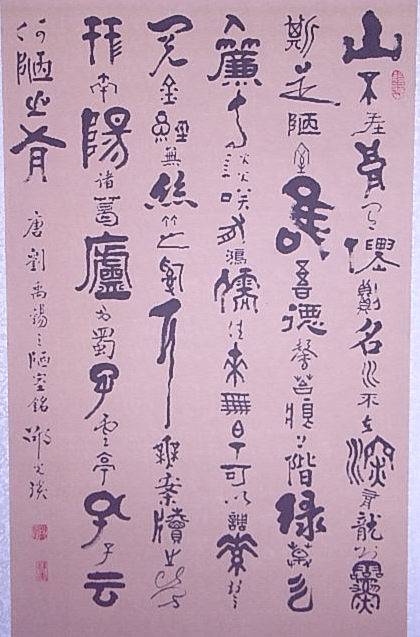 山不在高有僊則名水不在深有龍則靈
斯是陋室惟吾德馨苔痕上階綠草色
入簾青談笑有鴻儒往來無白丁可以調素琴
閱金經無絲竹之亂耳無案牘之勞
形南陽諸葛廬西蜀子雲亭孔子云
何陋之有
唐劉禹錫之陋室銘